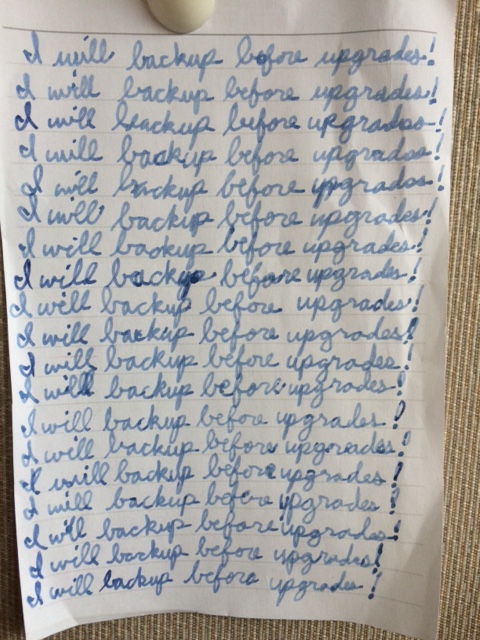 I will backup before upgrades!
I will backup before upgrades!
I will backup before upgrades!
I will backup before upgrades!
I will backup before upgrades!
I will backup before upgrades!
I will backup before upgrades!
I will backup before upgrades!
I will backup before upgrades!
I will backup before upgrades!
I will backup before upgrades!
I will backup before upgrades!
I will backup before upgrades!
I will backup before upgrades!
I will backup before upgrades!
I will backup before upgrades!
I will backup before upgrades!
I will backup before upgrades!
I will backup before upgrades!